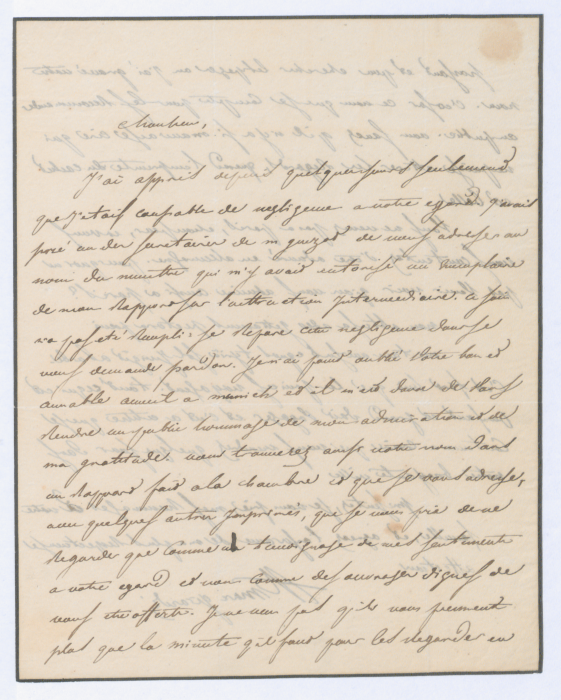 Monsieur,
J'ai appris depuis quelques jours seulement
que j'etais coupable de negligence a votre egard. j'avais
prié un des secretaires de m guizot de vous adresser au
nom du ministre qui m'y avait autorisé un exemplaire
de mon Rapport sur l'instruction Intermediaire. ce soin
n'a pas eté Rempli: je Repare cette negligence dont je
vous demande pardon. Je n'ai point oublié votre bon et
aimable accueil a munich et il m'est doux de
Rendre un public hommage de mon admiration et de
ma gratitude. vous trouverez aussi votre nom dans
un Rapport fait a la chambre et que je vous adresse,
avec quelques autres Imprimés, que je vous prie de ne
Regarder que comme un temoignage de mes sentiments
a votre egard et non comme des ouvrages dignes de
vous etre offerts. Je ne veux pas qu'ils vous prennent
plus que la minute qu'il faut pour les Regarder en